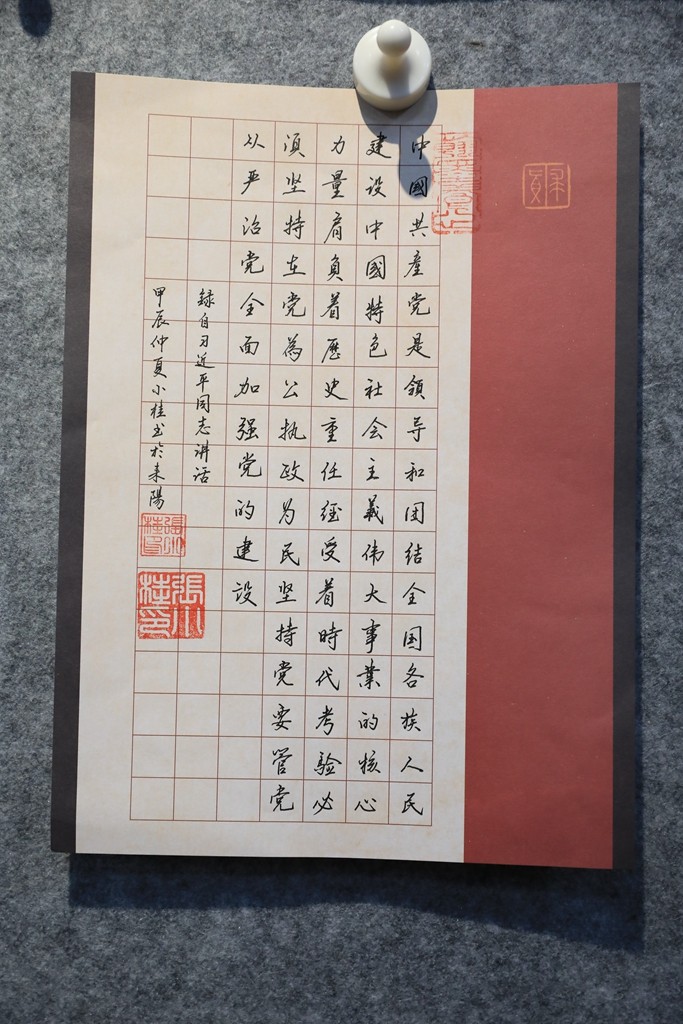 中國共產党是領导和团结全国各族人民
建设中國特色社会主義伟大事業的核心
力量肩负着歷史重任经受着時代考验必
须坚持立党為公执政为民坚持党要管党
从严治党全面加强党的建设
録自习近平同志讲话
甲辰仲夏小桂书於耒陽
張小桂印
張小桂印